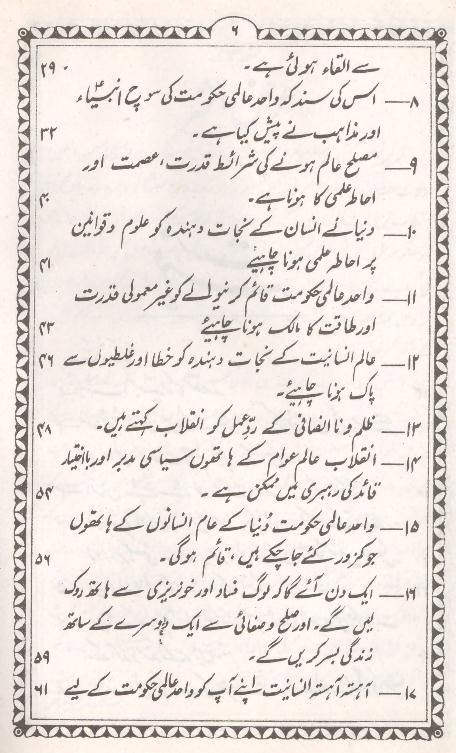 ۶
سے القاء ہوئی ہے۔ ۲۹
۸— اس کی سند کہ واحد عالمی حکومت کی سوچ انبیاء
اور مذاہب نے پیش کیا ہے۔ ۳۲
۹— مصلح عالم ہونے کی شرائط قدرت، عصمت اور
احاطہ علمی کا ہونا ہے۔ ۴۰
۱۰— دنیائے انسان کے نجات دہندہ کو علوم و قوانین
پر احاطہ علمی ہونا چاہیئے ۴۱
۱۱— واحد عالمی حکومت قائم کرنیوالے کو غیر معمولی قدرت
اور طاقت کا مالک ہونا چاہیئے ۴۳
۱۲— عالم انسانیت کے نجات دہندہ کو خطا اور غلطیوں سے ۴۶
پاک ہونا چاہیئے۔
۱۳— ظلم و نا انصافی کے ردِّ عمل کو انقلاب کہتے ہیں۔ ۴۸
۱۴— انقلاب عالم عوام کے ہاتھوں سیاسی مدبر اور با اختیار
قائد کی رہبری میں ممکن ہے۔ ۵۴
۱۵— واحد عالمی حکومت دُنیا کے عام انسانوں کے ہاتھوں
جو کمزور کئے جا چکے ہیں، قائم ہوگی۔ ۵۶
۱۶— ایک دن آئے گا کہ لوگ فساد اور خونریزی سے ہاتھ روک
لیں گے۔ اور صلح و صفائی سے ایک دوسرے کے ساتھ
زندگی بسر کریں گے۔ ۵۹
۱۷— آہستہ آہستہ انسانیت اپنے آپ کو واحد عالمی حکومت کے لیے ۶۱